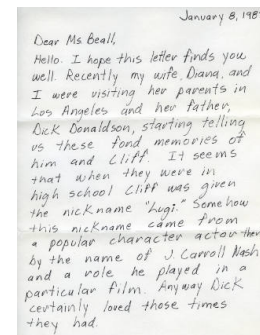 January 8, 198
Dear Ms Beall,
Hello. I hope this letter finds you
well. Recently my wife, Diana, and
I were visiting her parents in
Los Angeles and her father,
Dick Donaldson, starting telling
us these fond memories of
him and Cliff. It seems
that when they were in
high school Cliff was given
the nickname "Lugi." Somehow
this nickname came from
a popular character actor then
by the name of J. Carroll Nash
and a role he played in a
particular film. Anyway Dick
certainly loved those times
they had.